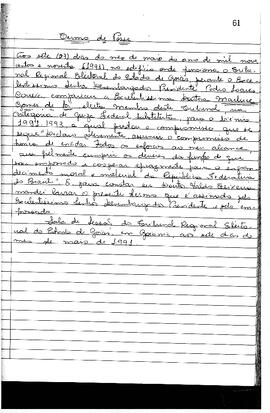 61
Termo de Posse
Aos sete (07) dias do mês de maio do ano de mil nove
centos e noventa (1991), no edifício onde funciona o Tribu-
nal Regional Eleitoral do Estado de Goiás, perante o Exce
lentíssimo Senhor Desembargador Presidente Pedro Soares
compareceu a Excelentíssima Doutora
Gomes da eleita Membro deste Tribunal, na
categoria de Juiz Federal Substituto, para o biênio
1991/1993, a qual prestou o compromisso que se
segue:
de envidar todos os esforços ao meu alcance
fielmente cumprir os deveres da função de que
e cooperar para o engran
decimento moral e material da República Federativa
do Brasil". E, para constar eu,
mandei lavrar o presente termo que é assinado pelo
Excelentíssimo Senhor Desembargador Presidente e pelo em-
possado.
Sala de Sessões do Tribunal Regional Eleito
ral do Estado de Goiás, em Goiânia, aos sete dias do
mês de maio de 1991.